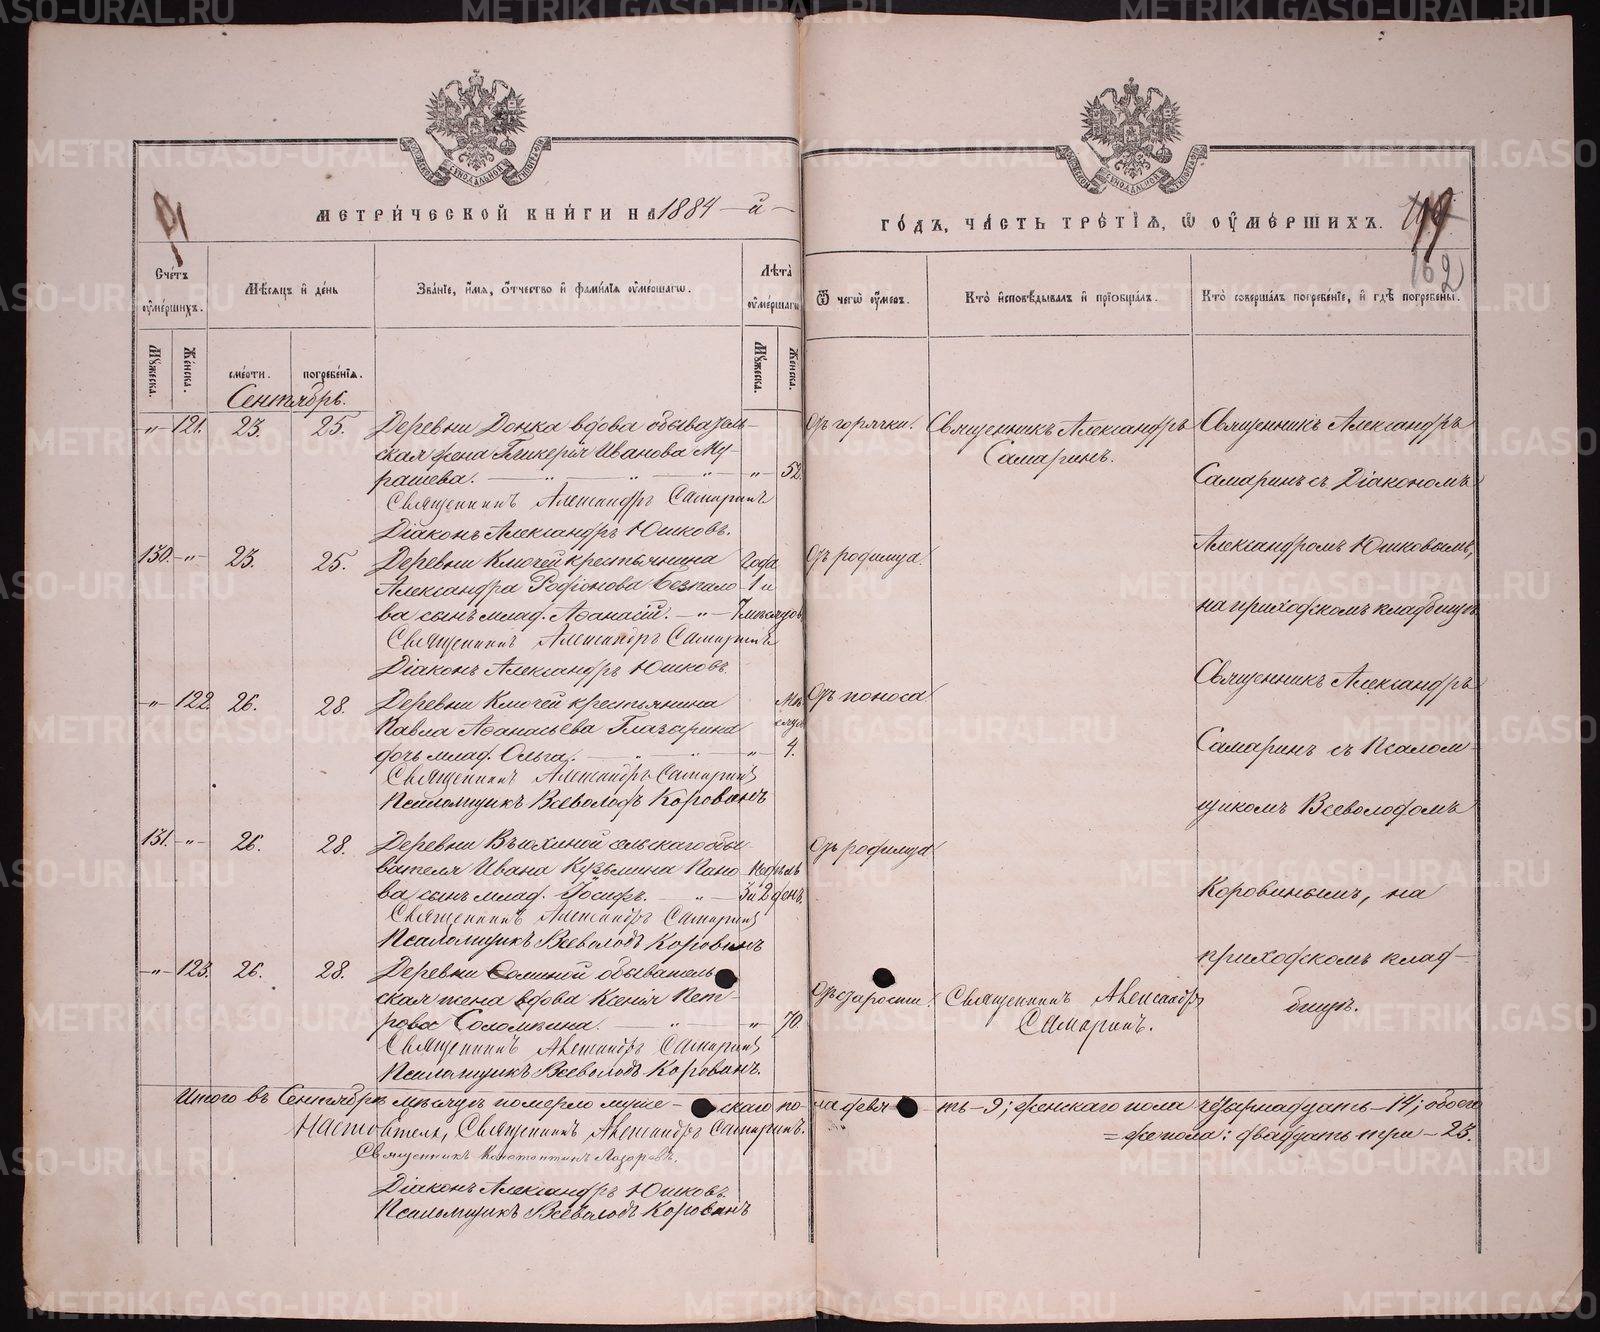 МЕТРИ́ЧЕСКОЙ КНИ́ГИ НА 1884 -й-
ГО́ДЪ, ЧА́СТЬ ТРЕ́ТІѦ, Ѿ ОУ҆МЕ́РШИХЪ.
162
Сче́тъ оумершихъ.
Мѣсяцъ и день
Званіе, имя, отчество и фамилія оумершагѡ.
Лѣта оумершагѡ
Ѿ чегѡ оумеръ.
Кто исповѣдывалъ и пріобщалъ.
Кто совершалъ погребеніе, и гдѣ погребены.
Мужеска.
Женска.
смерти.
погребенія.
Мужеска.
Женска.
Сентябрь.
-„- 121. 23. 25. Деревни Донка вдова обыватель-
ская жена Гликерія Иванова Му-
рашева. - „ - „ - „ - „ 52.
Священникъ Александръ Самаринъ
Діаконъ Александръ Юшковъ.
Отъ горячки.
Священникъ Александръ
Самаринъ.
Священникъ Александръ
Самаринъ съ Діакономъ
Александромъ Юшковымъ,
на приходскомъ кладбищѣ.
130. -„- 23. 25. Деревни Ключей крестьянина Года
Александра Родіонова Безпало- 1 и
ва сынъ млад. Аѳанасій. -„- 7 мѣсяцовъ
Священникъ Александръ Самаринъ
Діаконъ Александръ Юшковъ.
Отъ родимца.
-„- 122. 26. 28. Деревни Ключей крестьянина
Павла Аѳанасьева Глазарина
дочь млад. Ольга. - „ - „ 4.
Священникъ Александръ Самаринъ
Псаломщикъ Всеволодъ Коровинъ
Отъ поноса.
Священникъ Александръ
Самаринъ съ Псалом-
щикомъ Всеволодомъ
Коровинымъ, на
приходскомъ клад-
бищѣ.
131. -„- 26. 28. Деревни Вьюхиной сельскаго обы-
вателя Ивана Кузьмина Пано- Недѣль
ва сынъ млад. Іосифъ. -„- 3 и 2 день.
Священникъ Александръ Самаринъ
Псаломщикъ Всеволодъ Коровинъ
Отъ родимца
-„- 123. 26. 28. Деревни Соминой обыватель-
ская жена вдова Ксенія Пет-
рова Соломеина. - „ - „ 70.
Священникъ Александръ Самаринъ
Псаломщикъ Всеволодъ Коровинъ.
Отъ старости.
Священникъ Александръ
Самаринъ.
Итого въ Сентябрѣ мѣсяцѣ померло муже-скаго пола девять-9; женскаго пола четырнадцать-14; обоего
=же пола: двадцать три-23.
Настоятель, Священникъ Александръ Самаринъ.
Священникъ Константинъ Лазаровъ.
Діаконъ Александръ Юшковъ.
Псаломщикъ Всеволодъ Коровинъ
METRIKI.GASO-URAL.RU